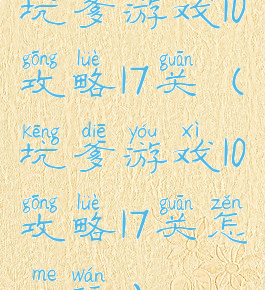 坑爹游戏10
gōng lüè guān
攻略17关（
kēng diē yóu xì
坑爹游戏10
gōng lüè guān zěn
攻略17关怎
me wán